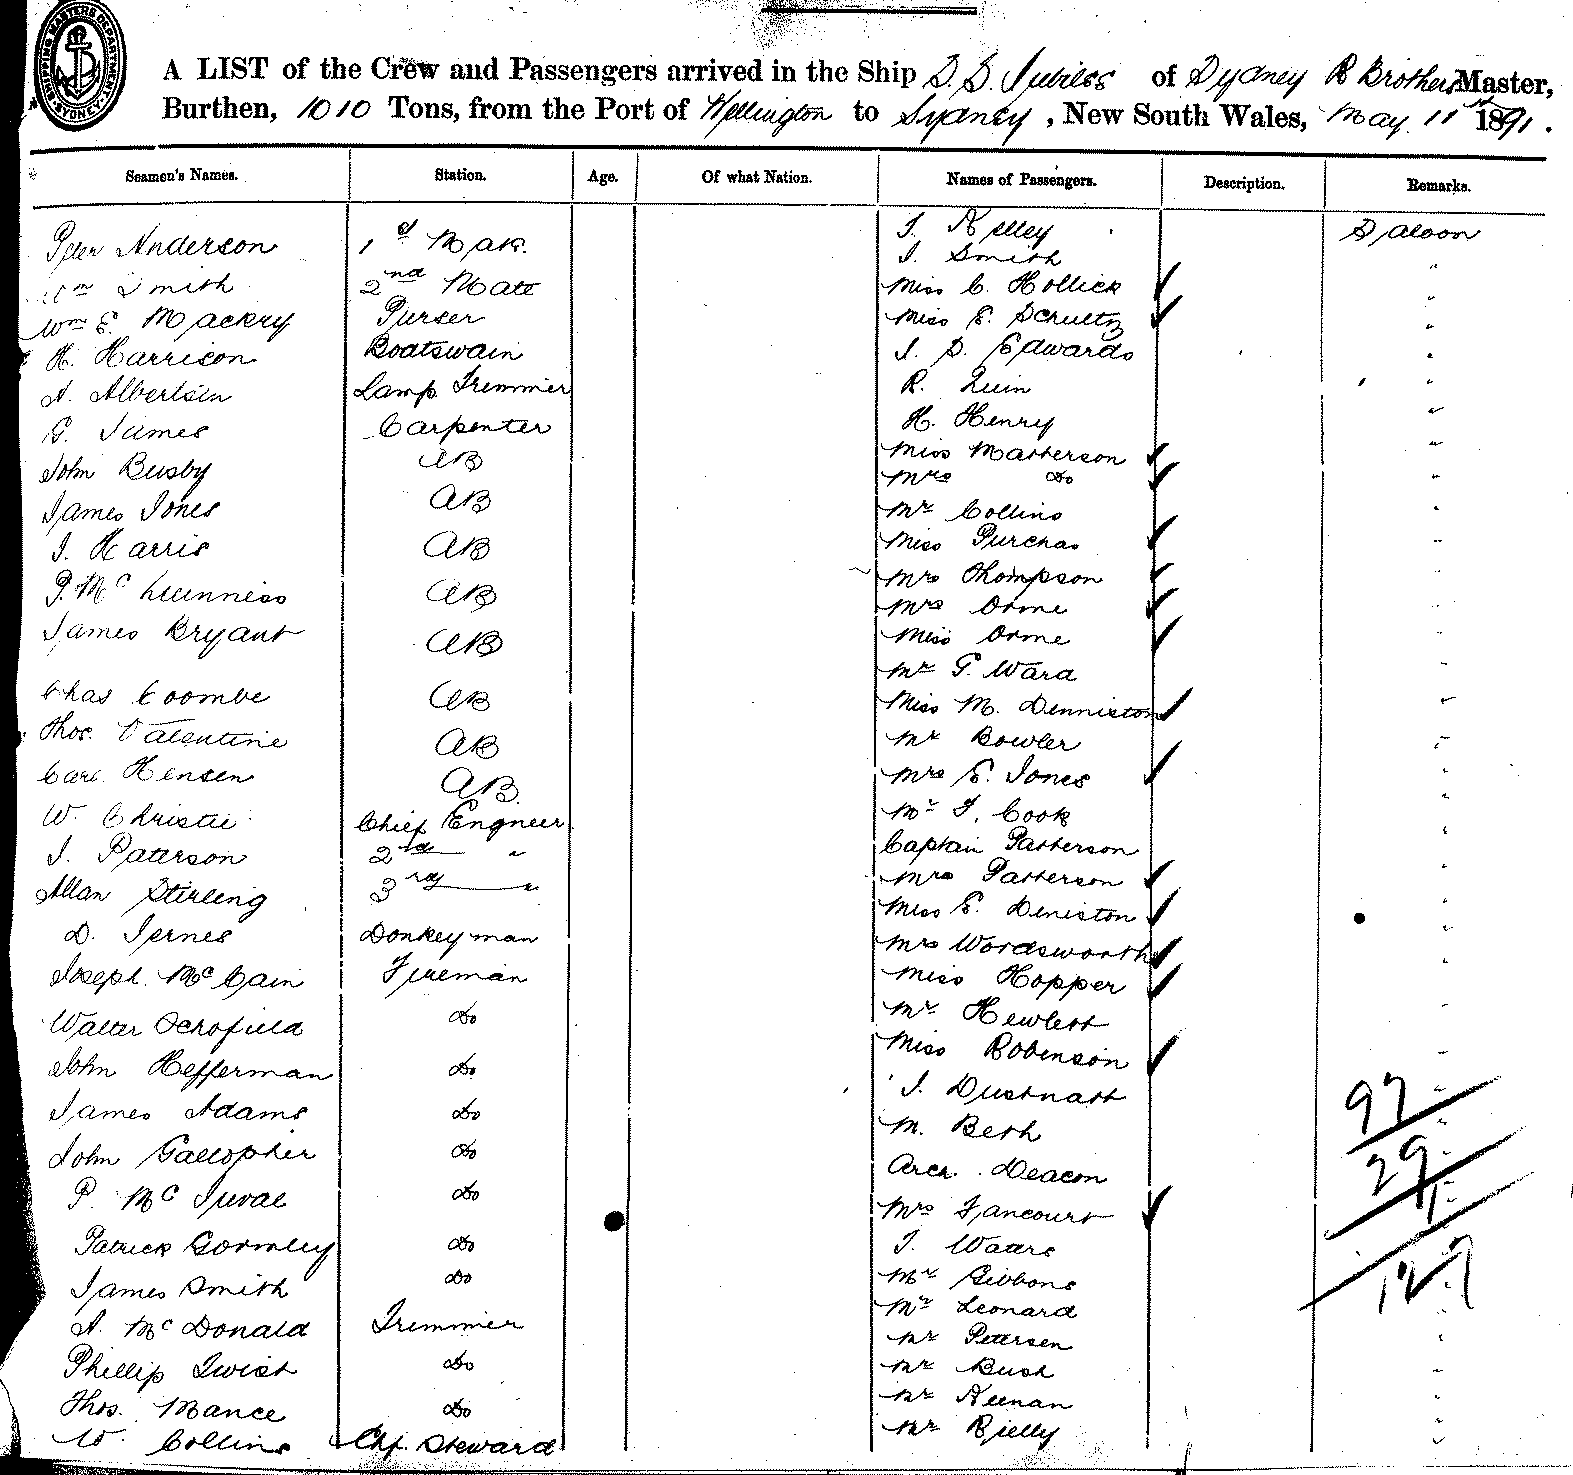 A LIST of the Crew and Passengers arrived in the Ship S. S. Jubilee of Sydney R Brothers Master,
Burthen, 1010 Tons, from the Port of Wellington to Sydney, New South Wales, May 11th 1891.
Seamen's Names. Station. Age. Of what Nation. Names of Passengers. Description. Remarks.
Peter Anderson 1st Mate
Wm Smith 2nd Mate
Wm E. Mackry Purser
H. Harrison Boatswain
A. Albertsen Lamp Trimmer
G. James Carpenter
John Busby AB
James Jones AB
J. Harris AB
P. Mc Guinness AB
James Bryant AB
Chas Coombe AB
Thos. Valentine AB
Carl Hensen AB
W. Christie Chief Engneer
J. Paterson 2nd "
Allan Stirling 3rd "
D. Jernes Donkeyman
Joseph Mc Cain Fireman
Walter Schofield Do
John Hefferman Do
James Adams Do
John Gallopher Do
P. Mc Do
Patrick Gormley Do
James Smith Do
A. Mc Donald Trimmer
Phillip Twist Do
Thos. Mance Do
W. Collins Chf. Steward
J. Kelley Saloon
J. Smith "
Miss C. Hollick "
Miss E. Schultz "
J. S. Edwards "
R. Quin "
H. Henry "
Miss Matterson "
Mrs Do "
Mr Collins "
Miss Purchas "
Mrs Thompson "
Mrs Orme "
Miss Orme "
Mr G. Ward "
Miss M. Denniston "
Mr Bowler "
Mrs E. Jones "
Mr J. Cook "
Captain Patterson "
Mrs Patterson "
Miss E. Deniston "
Mrs Wordsworth "
Miss Hopper "
Mr Hewlett "
Miss Robenson "
J. Dustnatt "
M. Beth "
Arch. Deacon "
Mrs Fancourt "
J. Waters "
Mr Gibbons "
Mr Leonard "
Mr Petersen "
Mr Bush "
Mr Keenan "
Mr Rielly "
97
29
1
127